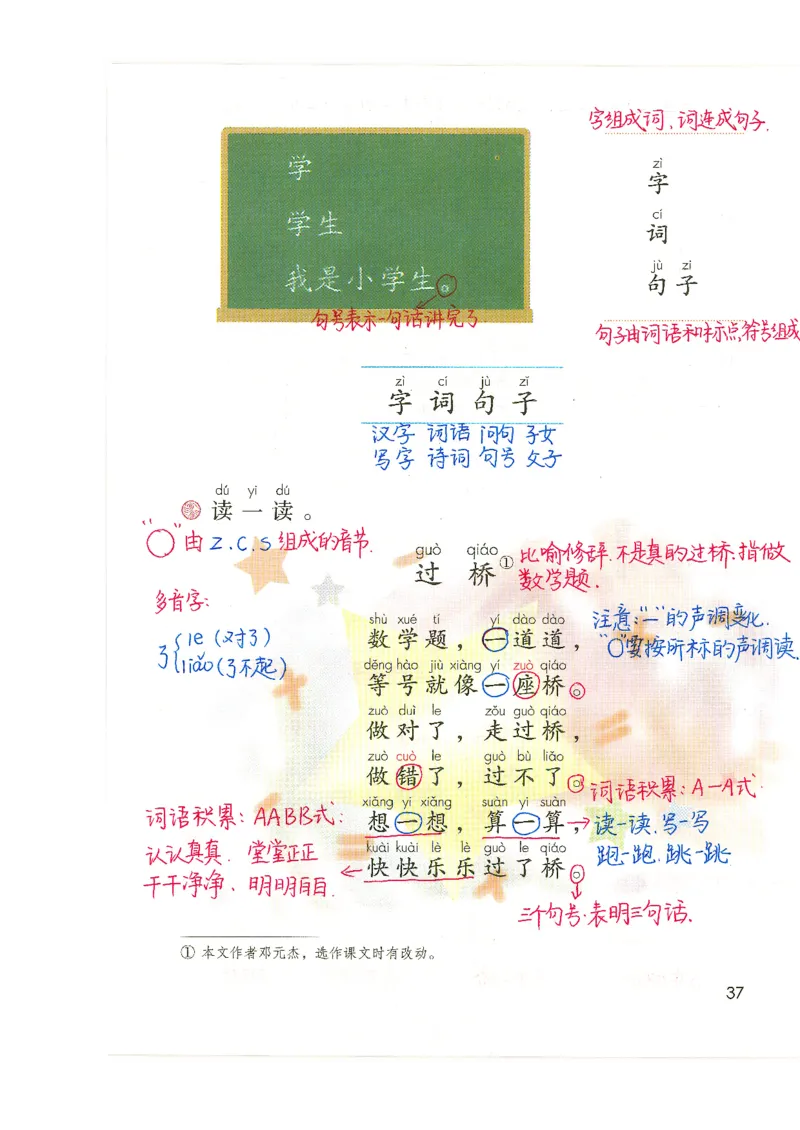 字组成词,词连成句子.
学
学生
我是小学生。
句号表示一句话讲完了
zì
字
cí
词
jù zi
句子
句子由词语和标点符号组成
zì cí jù zǐ
字词句子
汉字 词语 问句 子女
写字 诗词 句号 父子
dú yi dú
读一读。
"○"由z.c.s组成的音节.
guò qiáo
过桥①
比喻修辞.不是真的过桥.指做
数学题.
多音字:
了{le(对了)
liǎo(了不起)
shù xué tí yí dào dào
数学题,一道道,
děng hào jiù xiàng yí zuò qiáo
等号就像一座桥。
zuò duì le zǒu guò qiáo
做对了,走过桥,
zuò cuò le guò bù liǎo
做错了,过不了。
xiǎng yi xiǎng suàn yi suàn
想一想,算一算,
kuài kuài lè lè guò le qiáo
快快乐乐过了桥。
注意:"一"的声调变化.
"○"要按所标的声调读.
词语积累:A一A式
读一读.写一写
跑一跑.跳一跳
词语积累:AABB式:
认认真真.堂堂正正
干干净净、明明白白.
三个句号.表明三句话.
① 本文作者邓元杰,选作课文时有改动。
37